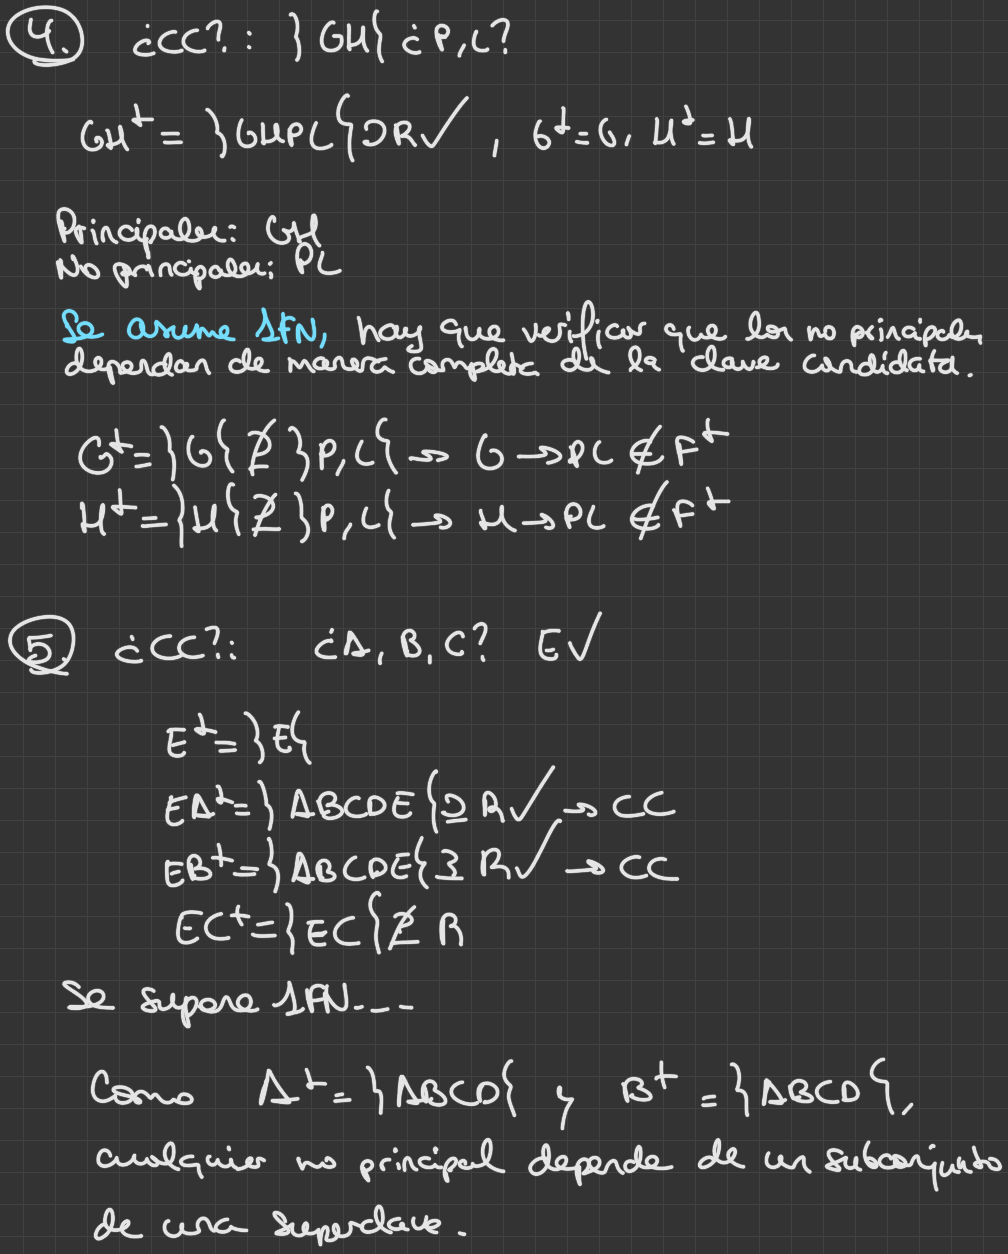 4. ¿CC?: }GH{ ¿P,L?
GH⁺= }GHPL{⊇R✓, G⁺=G, H⁺=H
Principales: GH
No principales: PL
Se asume 1FN, hay que verificar que los no principales
dependan de manera completa de la clave candidata.
G⁺=}G{ ⊉ }P,L{ → G→PL ∉ F⁺
H⁺=}H{ ⊉ }P,L{ → H→PL ∉ F⁺
5. ¿CC?: ¿A,B,C? E✓
E⁺=}E{
EA⁺=}ABCDE{⊇ R✓ → CC
EB⁺=}ABCDE{⊇ R✓ → CC
EC⁺=}EC{⊉ R
Se supone 1FN...
Como A⁺=}ABCD{ y B⁺=}ABCD{,
cualquier no principal depende de un subconjunto
de una superclave.